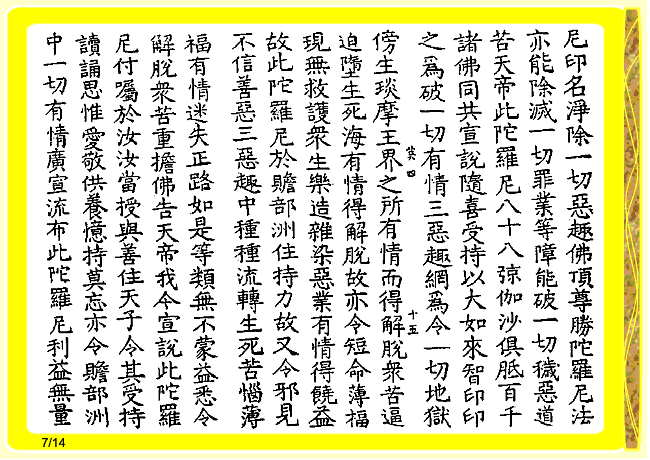 尼印名淨除一切惡趣佛頂尊勝陀羅尼法
亦能除滅一切罪業等障能破一切穢惡道
苦天帝此陀羅尼八十八弶伽沙俱胝百千
諸佛同共宣說隨喜受持以大如來智印印
之爲破一切有情三惡趣網爲令一切地獄
四 十五
傍生琰摩王界之所有情而得解脫衆苦逼
迫墮生死海有情得解脫故亦令短命薄福
現無救護衆生樂造雜染惡業有情得饒益
故此陀羅尼於贍部洲住持力故又令邪見
不信善惡三惡趣中種種流轉生死苦惱薄
福有情迷失正路如是等類無不蒙益悉令
解脫衆苦重擔佛告天帝我今宣說此陀羅
尼付囑於汝汝當授與善住天子令其受持
讀誦思惟愛敬供養憶持莫忘亦令贍部洲
中一切有情廣宣流布此陀羅尼利益無量
7/14